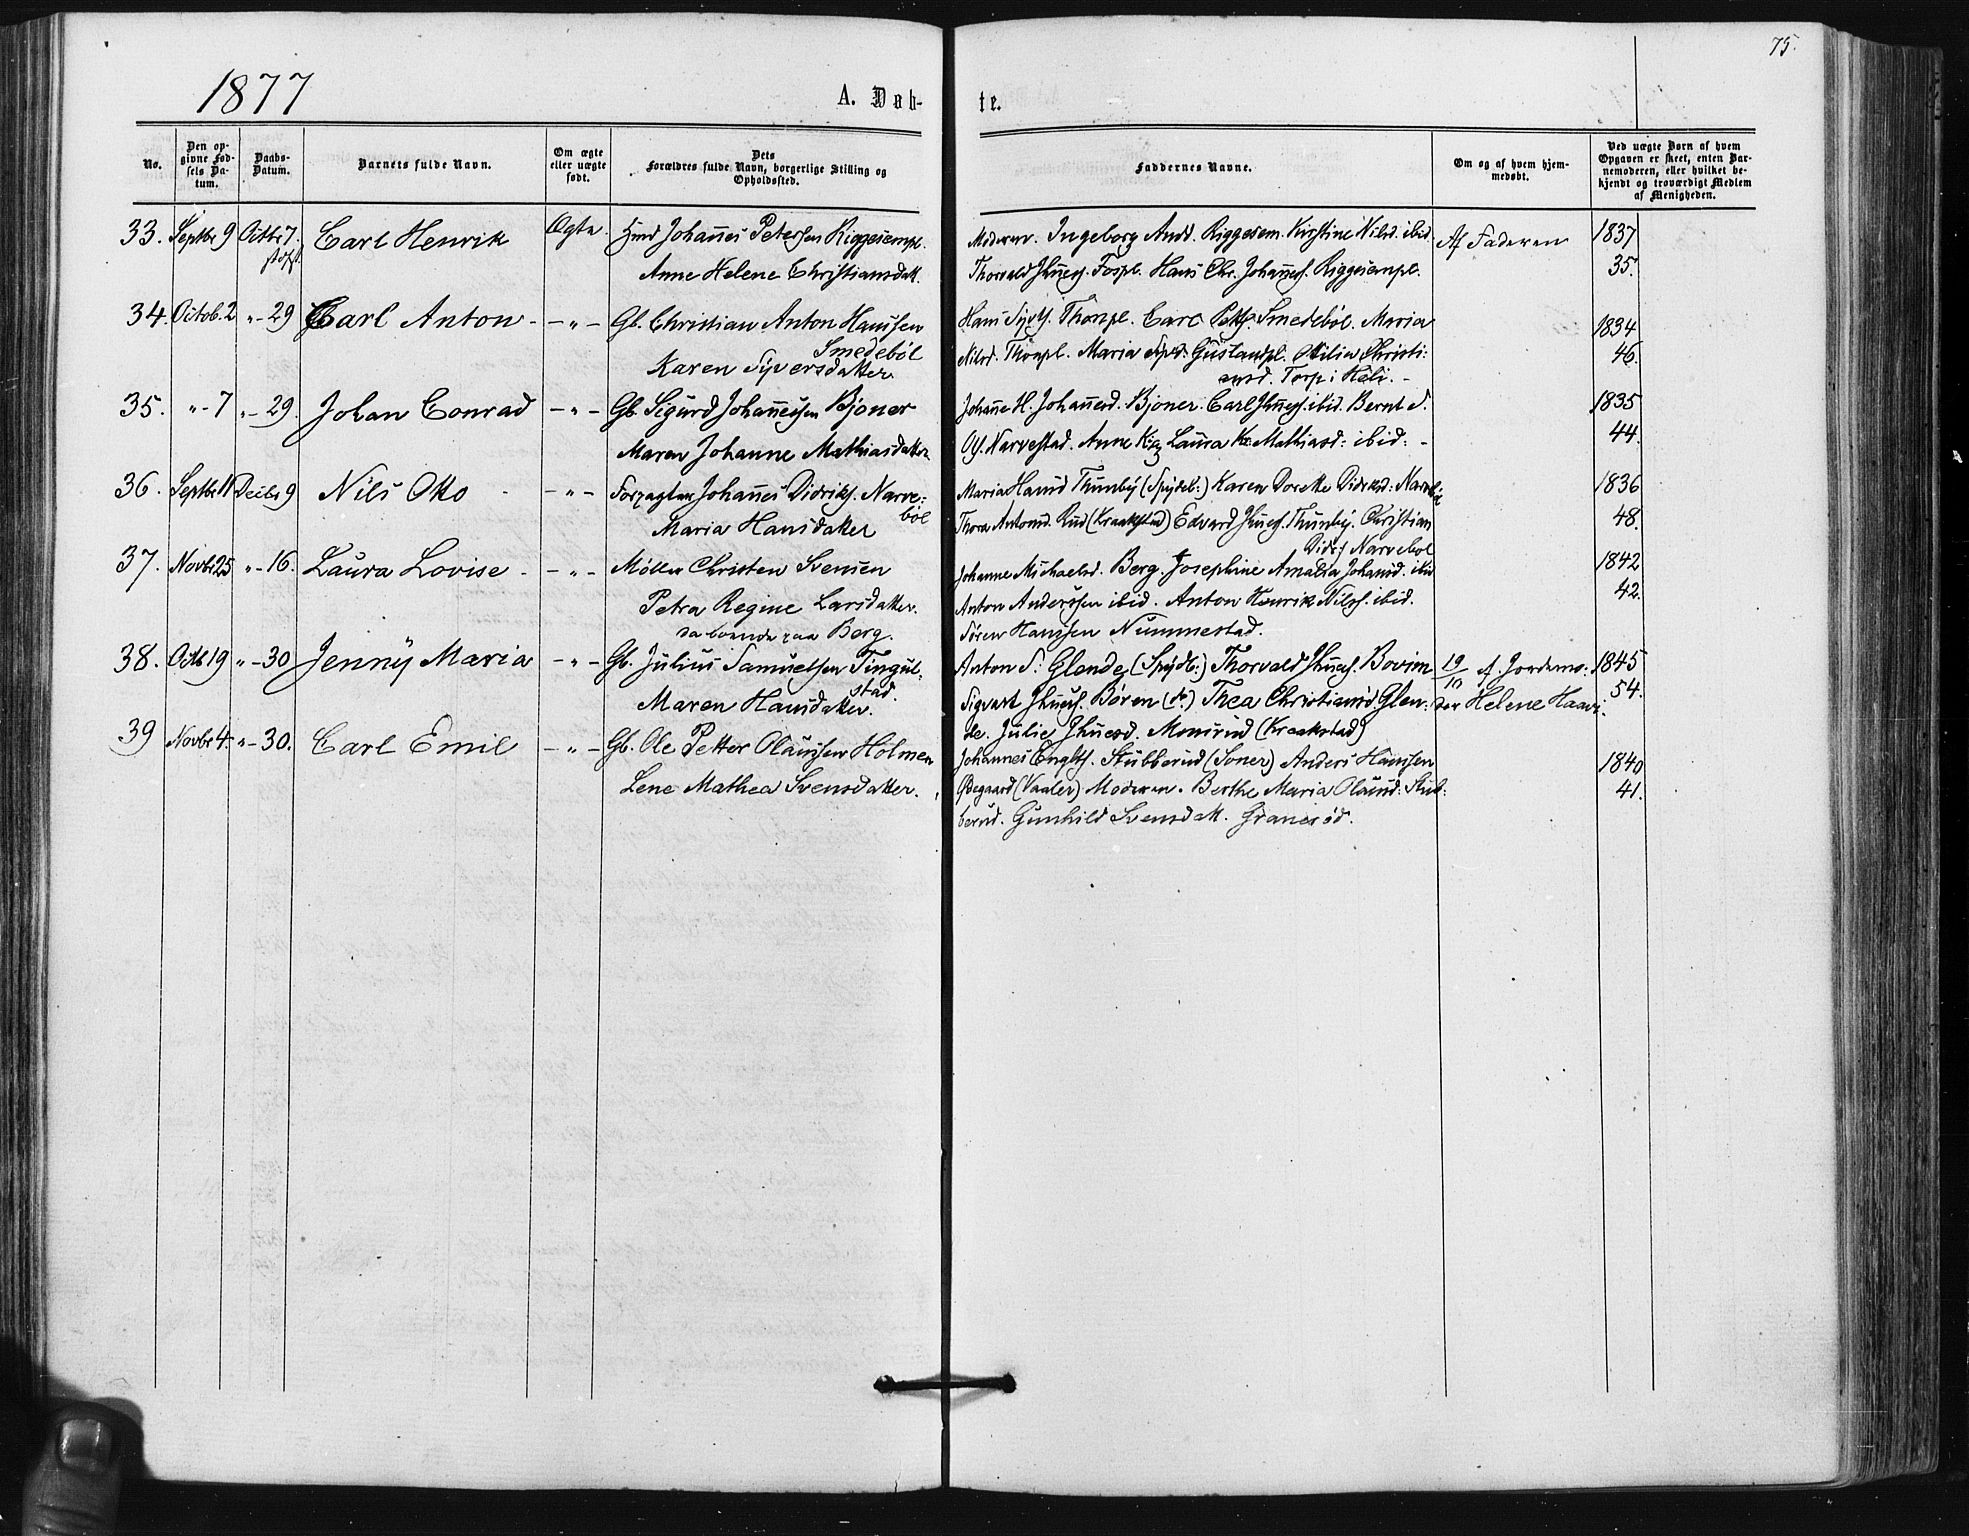 75.
1877
A. Døb-
te.
No.
Den op-
givne Fød-
sels Da-
tum.
Daabs-
Datum.
Barnets fulde Navn.
Om ægte
eller uægte
født.
Dets
Forældres fulde Navn, borgerlige Stilling og
Opholdssted.
Faddernes Navne.
Om og af hvem hjem-
medøbt.
Ved uægte Børn af hvem
Opgaven er skeet, enten Bar-
nemoderen, eller hvilket be-
kjendt og troværdigt Medlem
af Menigheden.
33. Septbr 9 Octbr 7. Carl Henrik Ægte. Hmd Johannes Petersen Riggesempl.
Anne Helene Christiansdatt.
Moderen. Ingeborg Andd. Riggesem. Kirstine Nilsd. ibid. Af Faderen 1837
Thorvald Jhness. Fospl. Hans Chr. Johanness. Riggesempl. 35.
34. Octob. 2 "-29 Carl Anton - -"- Gb. Christian Anton Hanssen
Smedebøl
Karen Syversdatter
Hans Syvts. Thorspl. Carl Petts. Smedebøl. Maria 1834
Nilsd. Thorspl. Maria Syvd. Gustandpl. Otilia Christi: 46.
ansd. Torp i Hëli. -
35. "-7 "-29. Johan Conrad -"- Gb. Sigurd Johannessen Bjoner
Maren Johanne Mathiasdatter
Johanne H. Johannesd. Bjoner. Carl Jhness. ibid. Bernt A. 1835
Ols. Narvestad. Anne K: og Laura Kr. Mathiasd: ibid: - 44.
36. Septbr 11 Decbr 9 Nils Otto - -"- Forpagter Johannes Didriks. Narve:
bøl
Maria Hansdatter
Maria Hansd Thunby (Spydeb:) Karen Dorette Didriksd: Narvebøl 1836
Thora Antonsd. Rud (Kraakstad) Edvard Jhness. Thunby. Christian 48.
Didrs. Narvebøl
37. Novbr 25 "-16. Laura Lovise - -"- Møller Christen Svensen
Petra Regine Larsdatter.
da boende paa Berg.
Johanne Michaelsd. Berg. Josephine Amalia Johansd. ibid 1842
Anton Anderssen ibid. Anton Henrik Nilss. ibid. 42.
Søren Hanssen Nummestad.
38. Octb 19 "-30 Jenny Maria -"- Gb. Julius Samuelsen Tingul-
stad.
Maren Hansdatter.
Anton S: Glende (Spydb:) Thorvald Jhness. Bovim 19/10 af Jordemo: 1845
Sigvart Jhness. Børen (do) Thea Christiansd Glen: der Helene Haavi. 54.
de. Julie Jhnesd. Monsrud (Kraakstad)
39 Novbr 4. "-30. Carl Emil -"- Gb. Ole Petter Olaussen Holmen
Lene Mathea Svensdatter.
Johannes Englts. Stubberud (Soner) Anders Hanssen 1840
Øegaard (Vaaler) Moderen. Berthe Maria Olausd: Stub: 41.
berud. Gunhild Svensdatt. Granerød.